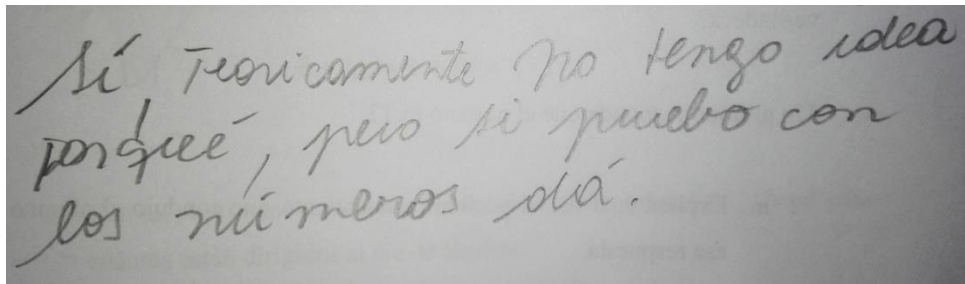 Sí, Teoricamente no tengo idea
porqué, pero si pruebo con
los números dá.